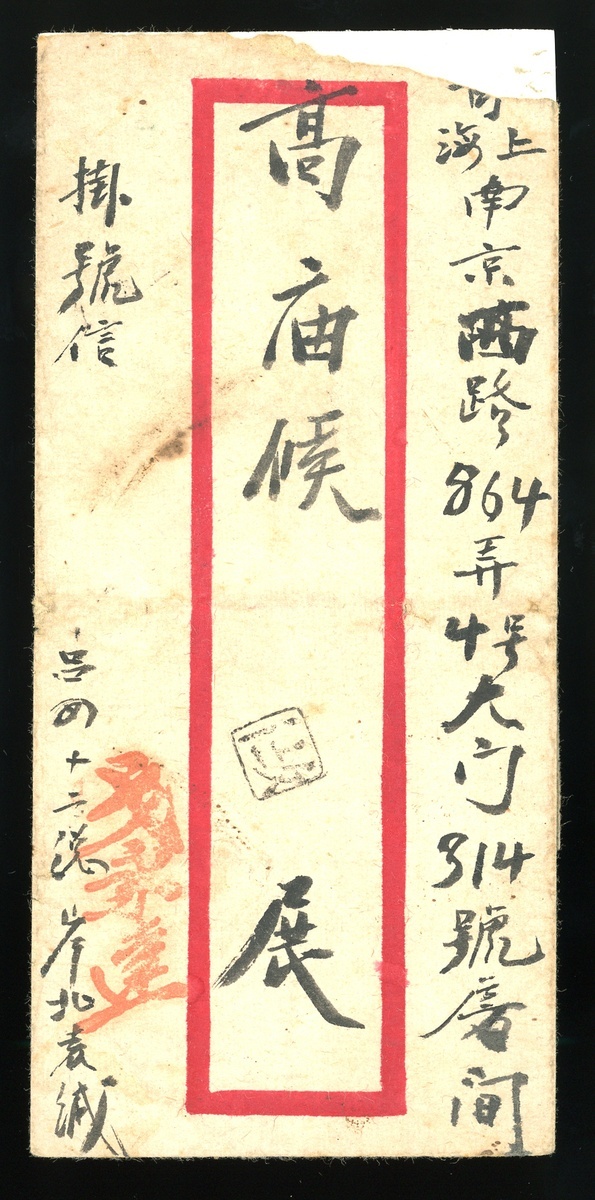 上海南京西路864弄4号大门314號房间
高庙候 展
掛號信
呂四十二港岸北袁缄